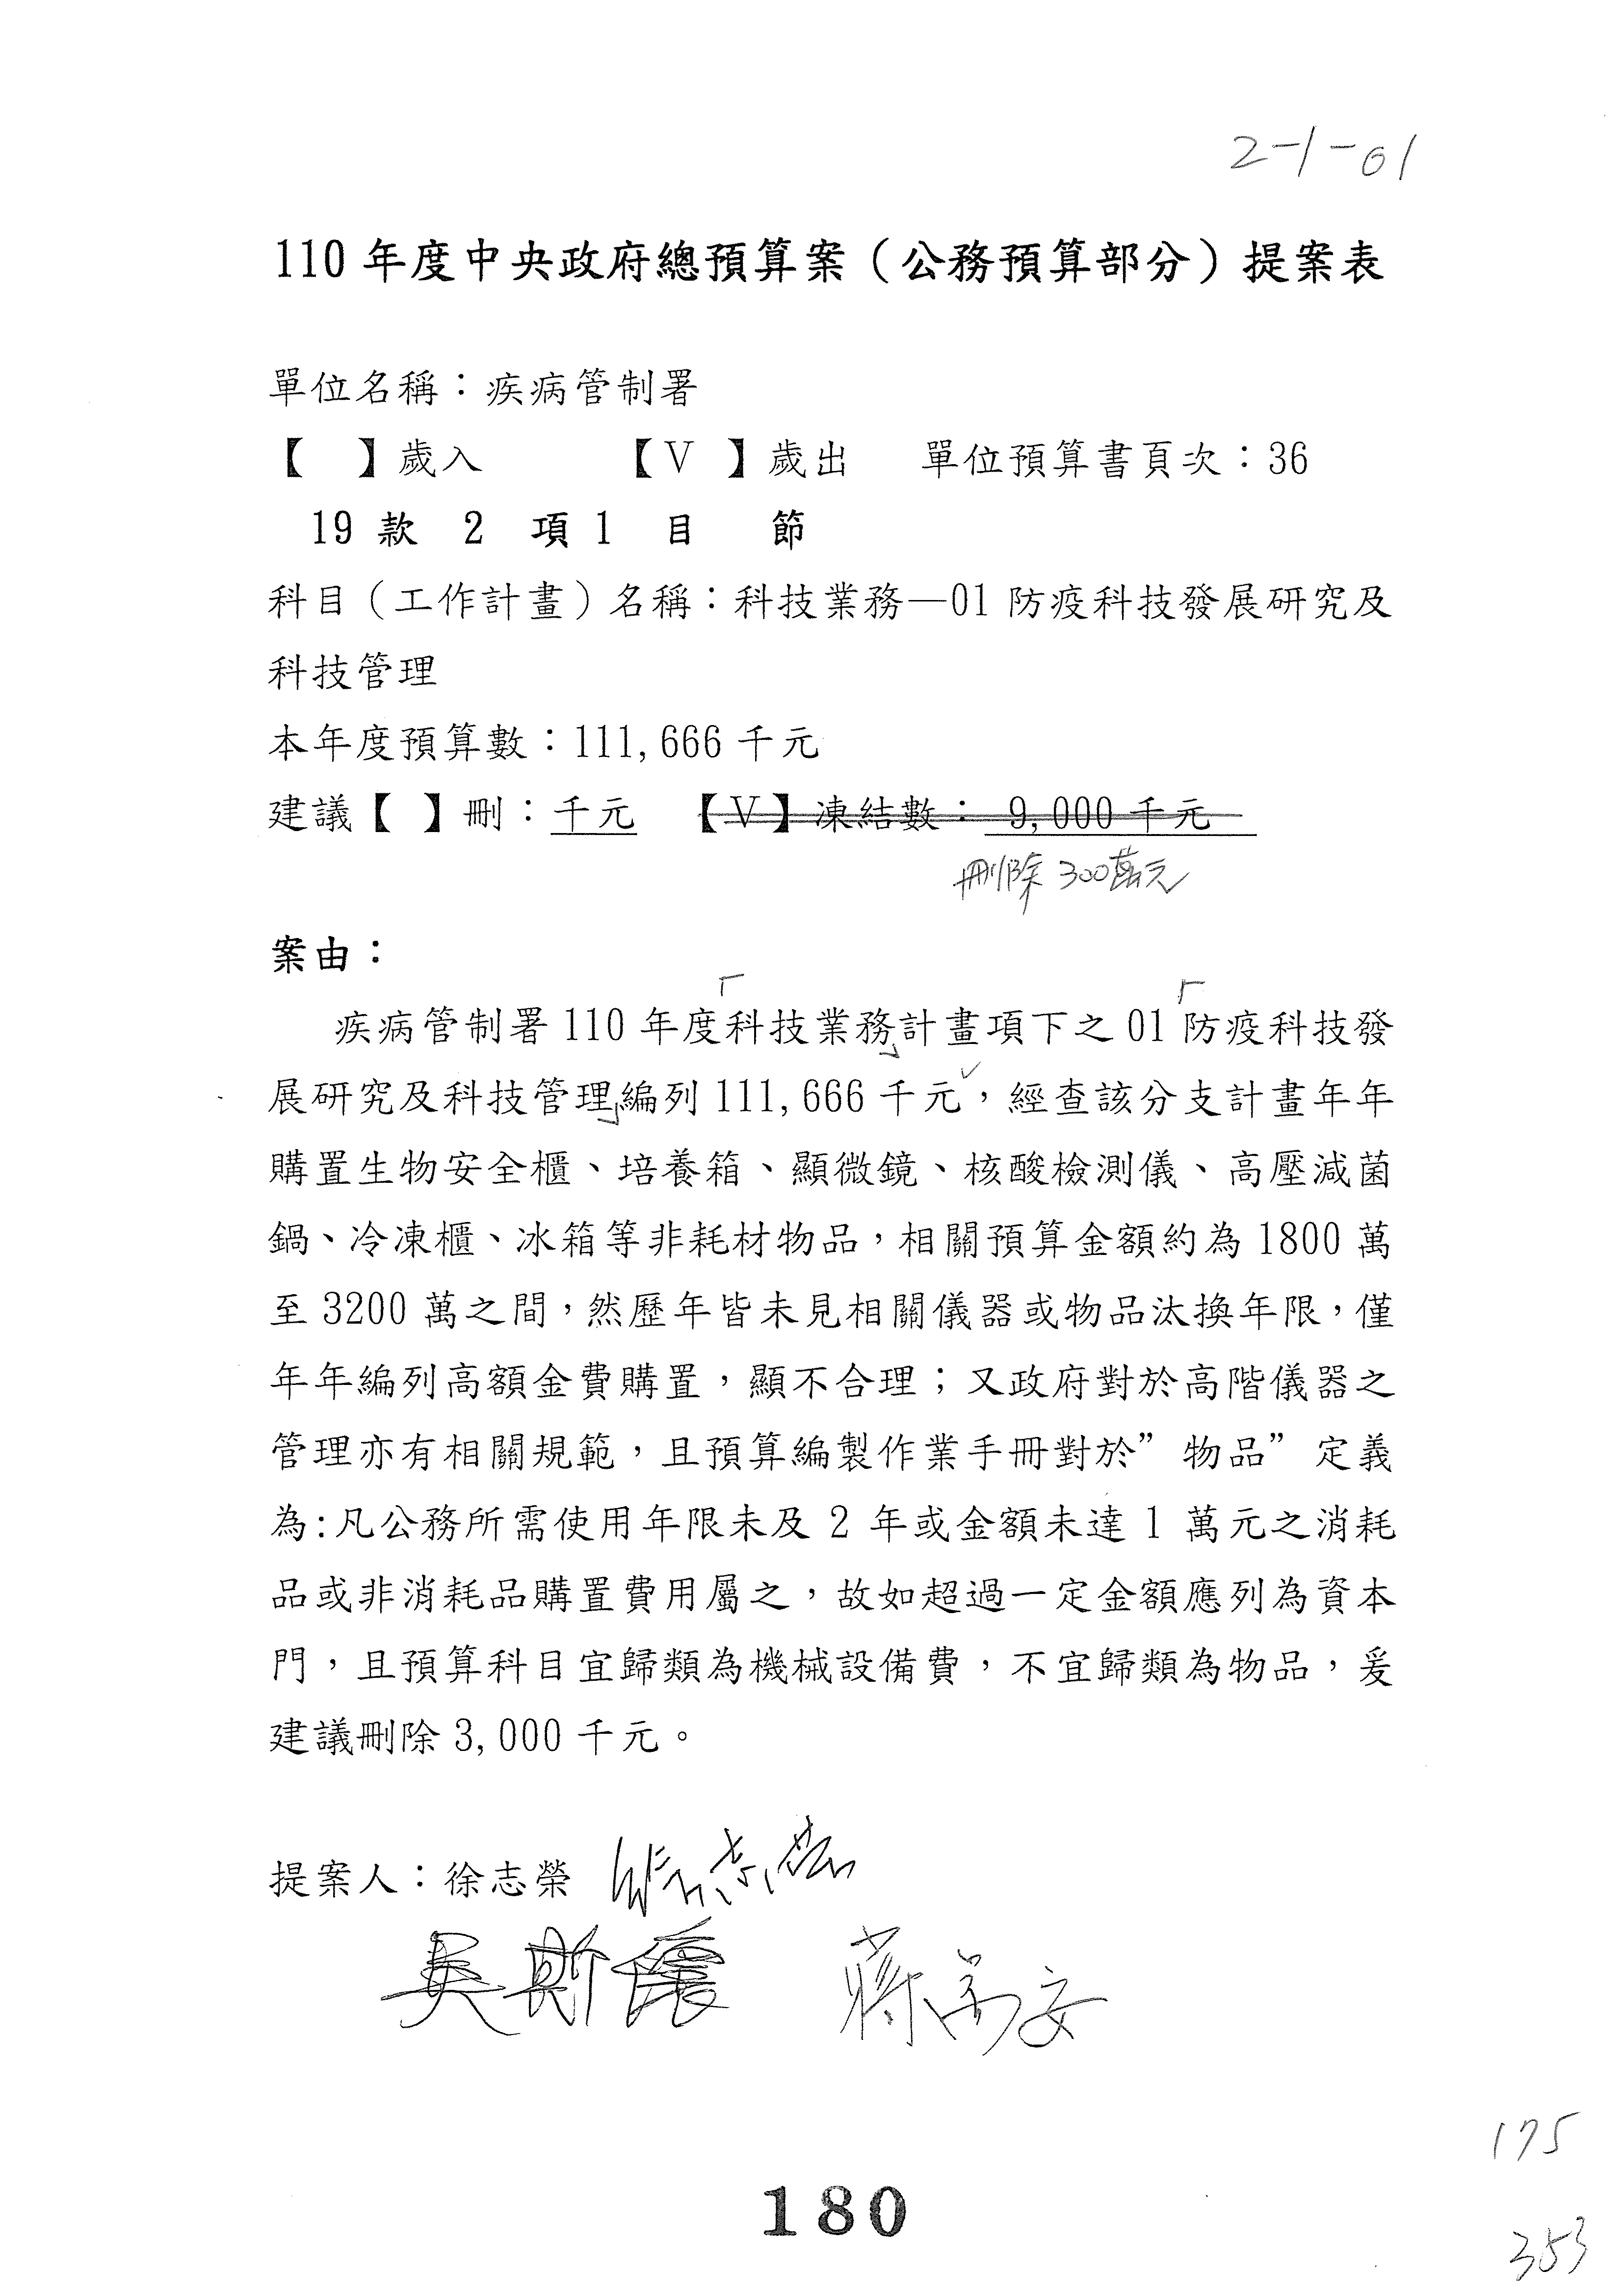 2-1-01
110 年度中央政府總預算案（公務預算部分）提案表
單位名稱：疾病管制署
【 】歲入 【V 】歲出 單位預算書頁次：36
19 款 2 項 1 目 節
科目（工作計畫）名稱：科技業務—01 防疫科技發展研究及
科技管理
本年度預算數：111,666 千元
建議【 】刪：千元 【V】凍結數： 9,000 千元
刪除 300萬元
案由：
疾病管制署 110 年度「科技業務」計畫項下之 01「防疫科技發
展研究及科技管理」編列 111,666 千元，經查該分支計畫年年
購置生物安全櫃、培養箱、顯微鏡、核酸檢測儀、高壓減菌
鍋、冷凍櫃、冰箱等非耗材物品，相關預算金額約為 1800 萬
至 3200 萬之間，然歷年皆未見相關儀器或物品汰換年限，僅
年年編列高額金費購置，顯不合理；又政府對於高階儀器之
管理亦有相關規範，且預算編製作業手冊對於”物品”定義
為:凡公務所需使用年限未及 2 年或金額未達 1 萬元之消耗
品或非消耗品購置費用屬之，故如超過一定金額應列為資本
門，且預算科目宜歸類為機械設備費，不宜歸類為物品，爰
建議刪除 3,000 千元。
提案人：徐志榮 徐志榮
吳斯懷 蔣萬安
175
180
353